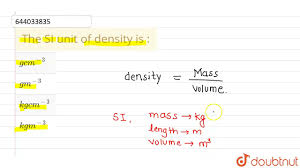 644033835
The SI unit of density is :
gcm⁻³
gm⁻³
kgcm⁻³
kgm⁻³
density = Mass
Volume.
SI, mass → kg
length → m
volume → m³
doubtnut